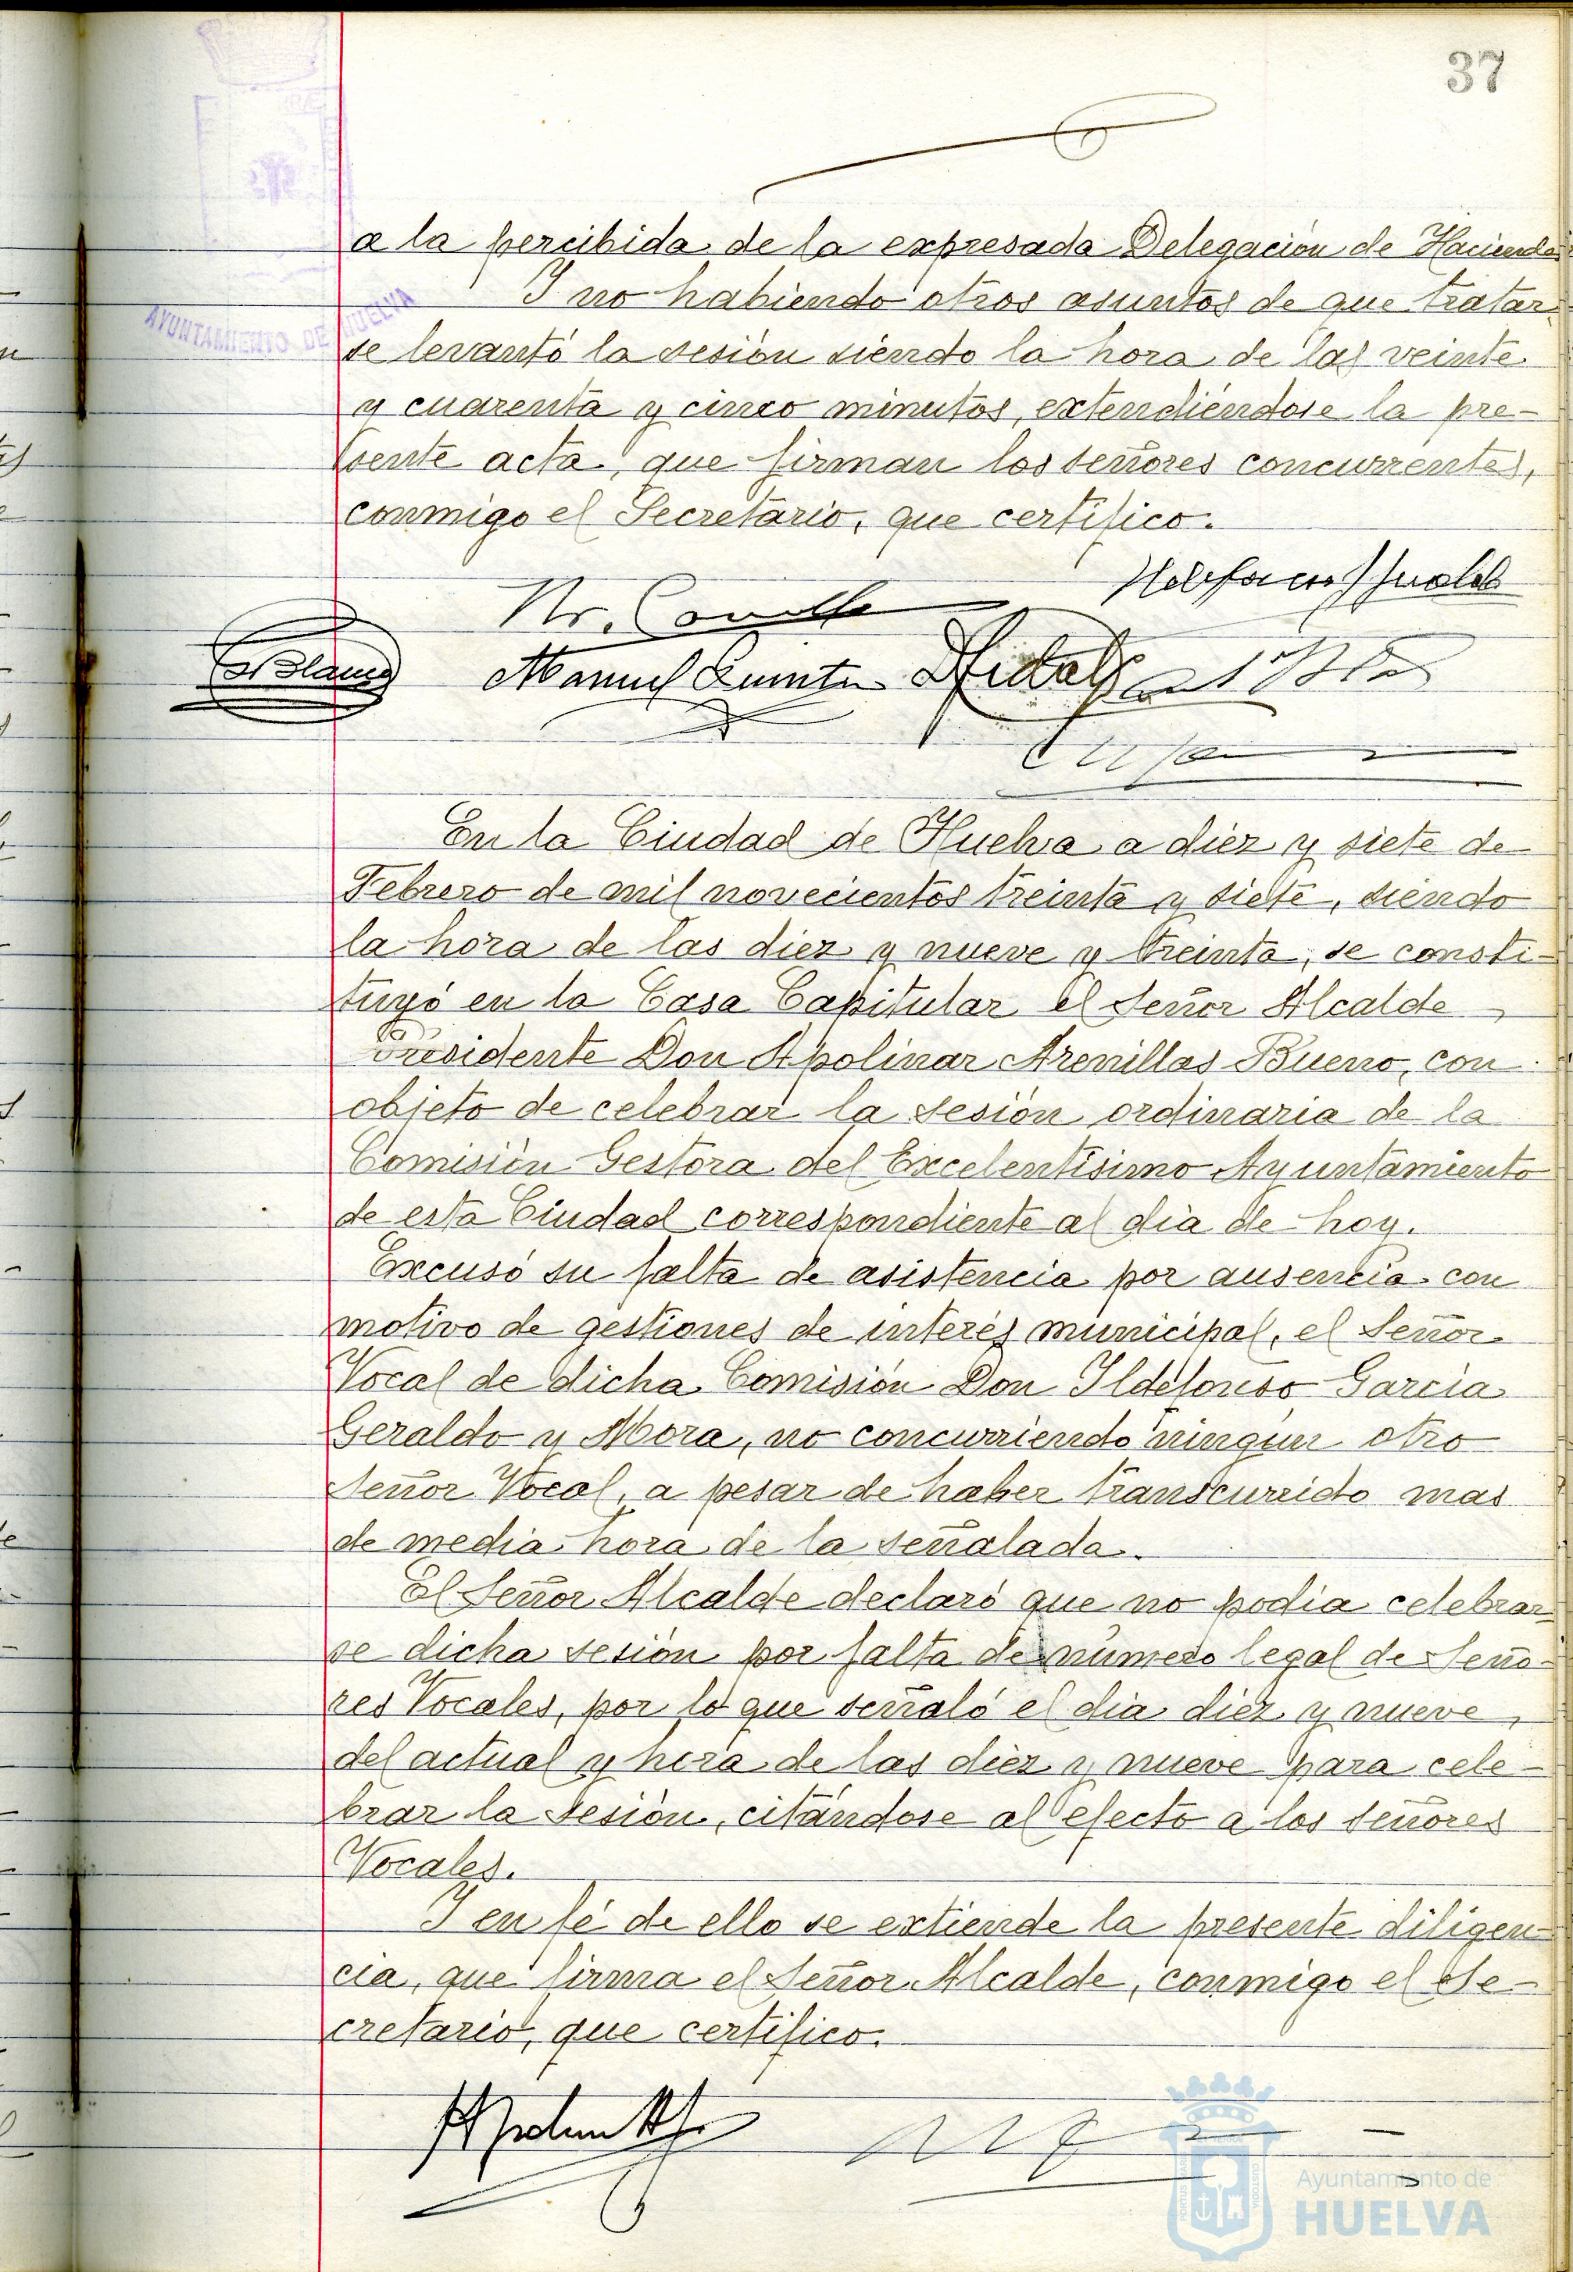 37
a la percibida de la expresada Delegación de Hacienda
Y no habiendo otros asuntos de que tratar
se levantó la sesión siendo la hora de las veinte
y cuarenta y cinco minutos, extendiéndose la pre-
sente acta, que firman los señores concurrentes,
conmigo el Secretario, que certifico.
AYUNTAMIENTO DE HUELVA
Blanco
Manuel Quintero
En la Ciudad de Huelva a diez y siete de
Febrero de mil novecientos treinta y siete, siendo
la hora de las diez y nueve y treinta, se consti-
tuyó en la Casa Capitular el Señor Alcalde
Presidente Don Apolinar Arenillas Bueno, con
objeto de celebrar la sesión ordinaria de la
Comisión Gestora del Excelentísimo Ayuntamiento
de esta Ciudad correspondiente al dia de hoy.
Excusó su falta de asistencia por ausencia con
motivo de gestiones de interés municipal, el Señor
Vocal de dicha Comisión Don Ildefonso García
Geraldo y Mora, no concurriendo ningun otro
Señor Vocal, a pesar de haber transcurrido mas
de media hora de la señalada.
El Señor Alcalde declaró que no podia celebrar
se dicha sesión por falta de número legal de Seño-
res Vocales, por lo que señaló el dia diez y nueve
del actual y hora de las diez y nueve para cele-
brar la sesión, citándose al efecto a los señores
Vocales.
Y en fé de ello se extiende la presente diligen-
cia, que firma el Señor Alcalde, conmigo el Se-
cretario, que certifico.
Ayuntamiento de
HUELVA